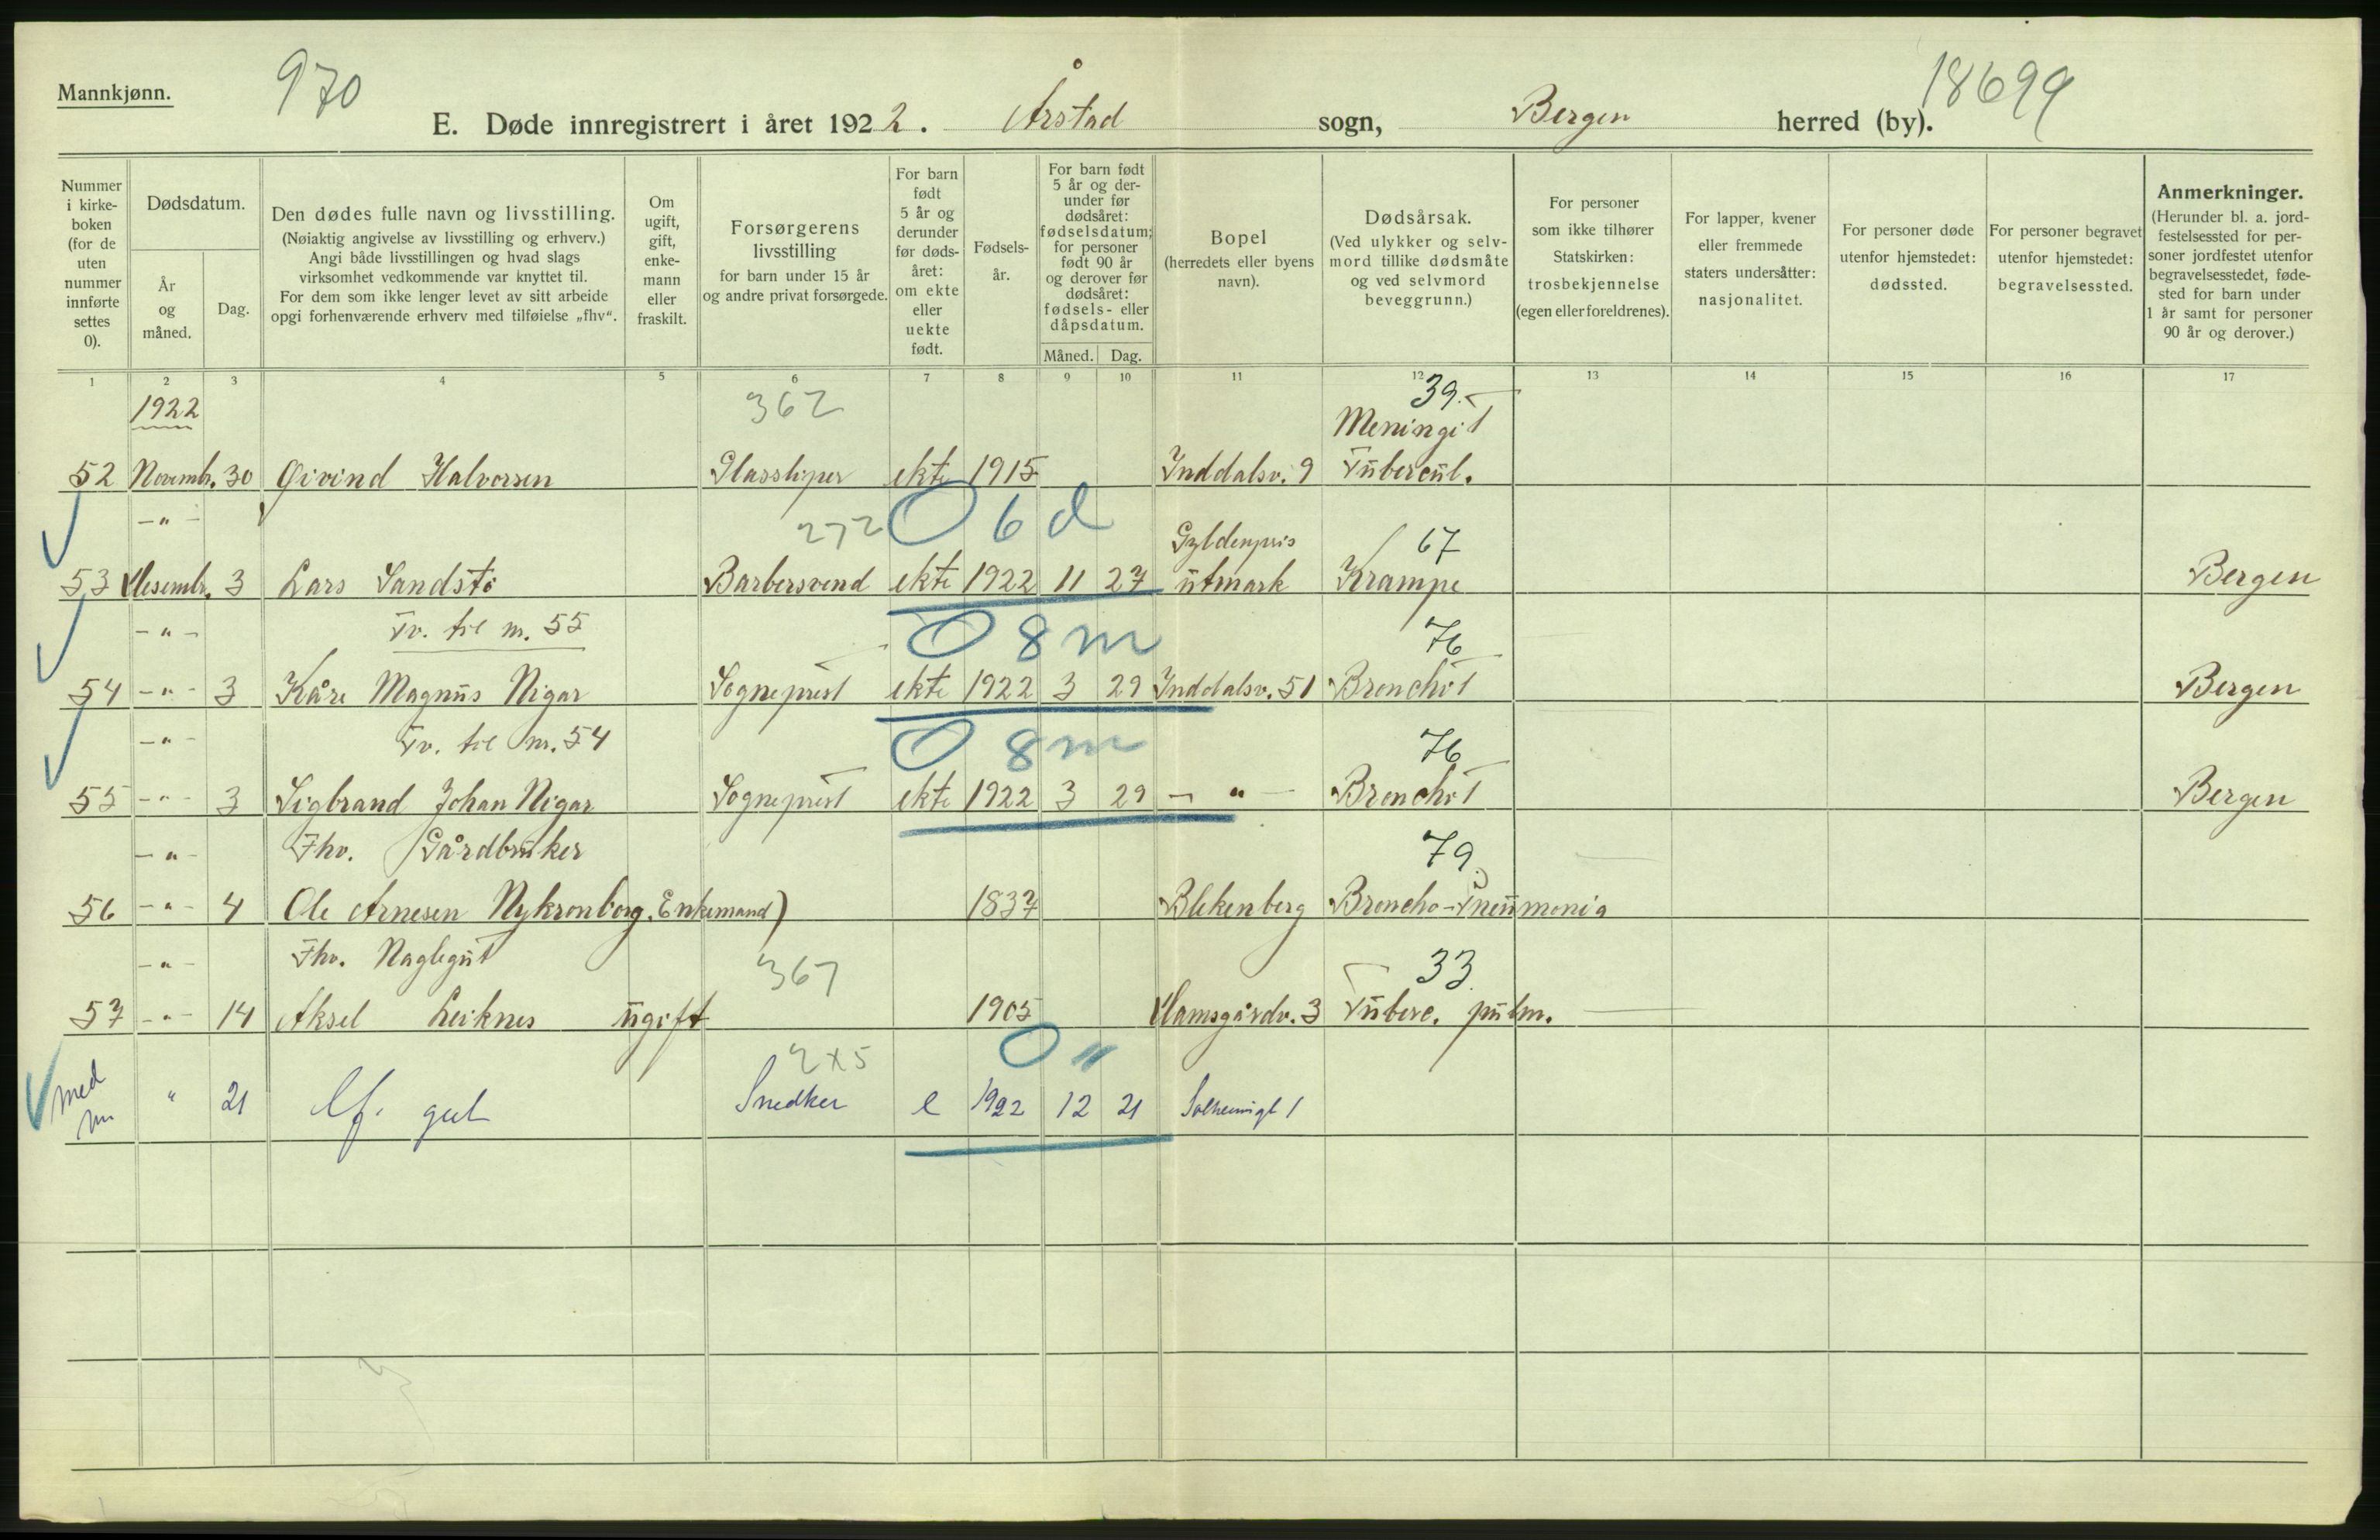 Mannkjønn.
970
18699
E. Døde innregistrert i året 1922. Årstad sogn, Bergen herred (by).
Nummer i kirkeboken (for de uten nummer innførte settes 0).
Dødsdatum.
År og måned.
Dag.
Den dødes fulle navn og livsstilling.
(Nøiaktig angivelse av livsstilling og erhverv.)
Angi både livsstillingen og hvad slags
virksomhet vedkommende var knyttet til.
For dem som ikke lenger levet av sitt arbeide
opgi forhenværende erhverv med tilføielse „fhv“.
Om ugift, gift, enkemann eller fraskilt.
Forsørgerens livsstilling
for barn under 15 år
og andre privat forsørgede.
For barn født 5 år og derunder før dødsåret: om ekte eller uekte født.
Fødselsår.
For barn født 5 år og derunder før dødsåret: fødselsdatum; for personer født 90 år og derover før dødsåret: fødsels- eller dåpsdatum.
Måned. Dag.
Bopel
(herredets eller byens navn).
Dødsårsak.
(Ved ulykker og selvmord tillike dødsmåte og ved selvmord beveggrunn.)
For personer som ikke tilhører Statskirken: trosbekjennelse (egen eller foreldrenes).
For lapper, kvener eller fremmede staters undersåtter: nasjonalitet.
For personer døde utenfor hjemstedet: dødssted.
For personer begravet utenfor hjemstedet: begravelsessted.
Anmerkninger.
(Herunder bl. a. jordfestelsessted for personer jordfestet utenfor begravelsesstedet, fødested for barn under 1 år samt for personer 90 år og derover.)
1 2 3 4 5 6 7 8 9 10 11 12 13 14 15 16 17
1922 362 39.
Meningit
52 Novemb. 30 Øivind Halvorsen Glassliper ekte 1915 Inddalsv. 9 Tubercul.
-"- 272 0 6 d Gyldenpris 67
53 Desembr. 3 Lars Sandstø Barbersvend ekte 1922 11 27 utmark Krampe Bergen
-"- Tv. til nr. 55 0 8 m 76
54 -"- 3 Kåre Magnus Nigar Sogneprest ekte 1922 3 29 Inddalsv. 51 Bronchit Bergen
-"- Tv. til nr. 54 0 8 m 76
55 -"- 3 Sigbrand Johan Nigar Sogneprest ekte 1922 3 29 -"- Bronchit Bergen
-"- Fhv. Gårdbruker 79
56 -"- 4 Ole Arnesen Nykronborg. Enkemand) 1837 Blekenberg Broncho-Pneumonia
-"- Fhv. Naglegut 367 33
57 -"- 14 Aksel Leiknes ugift 1905 Damsgårdv. 3 Tuberc. pulm.
2x5 0 "
" 21 gut Snedker e 1922 12 21 Solheimsgt 1